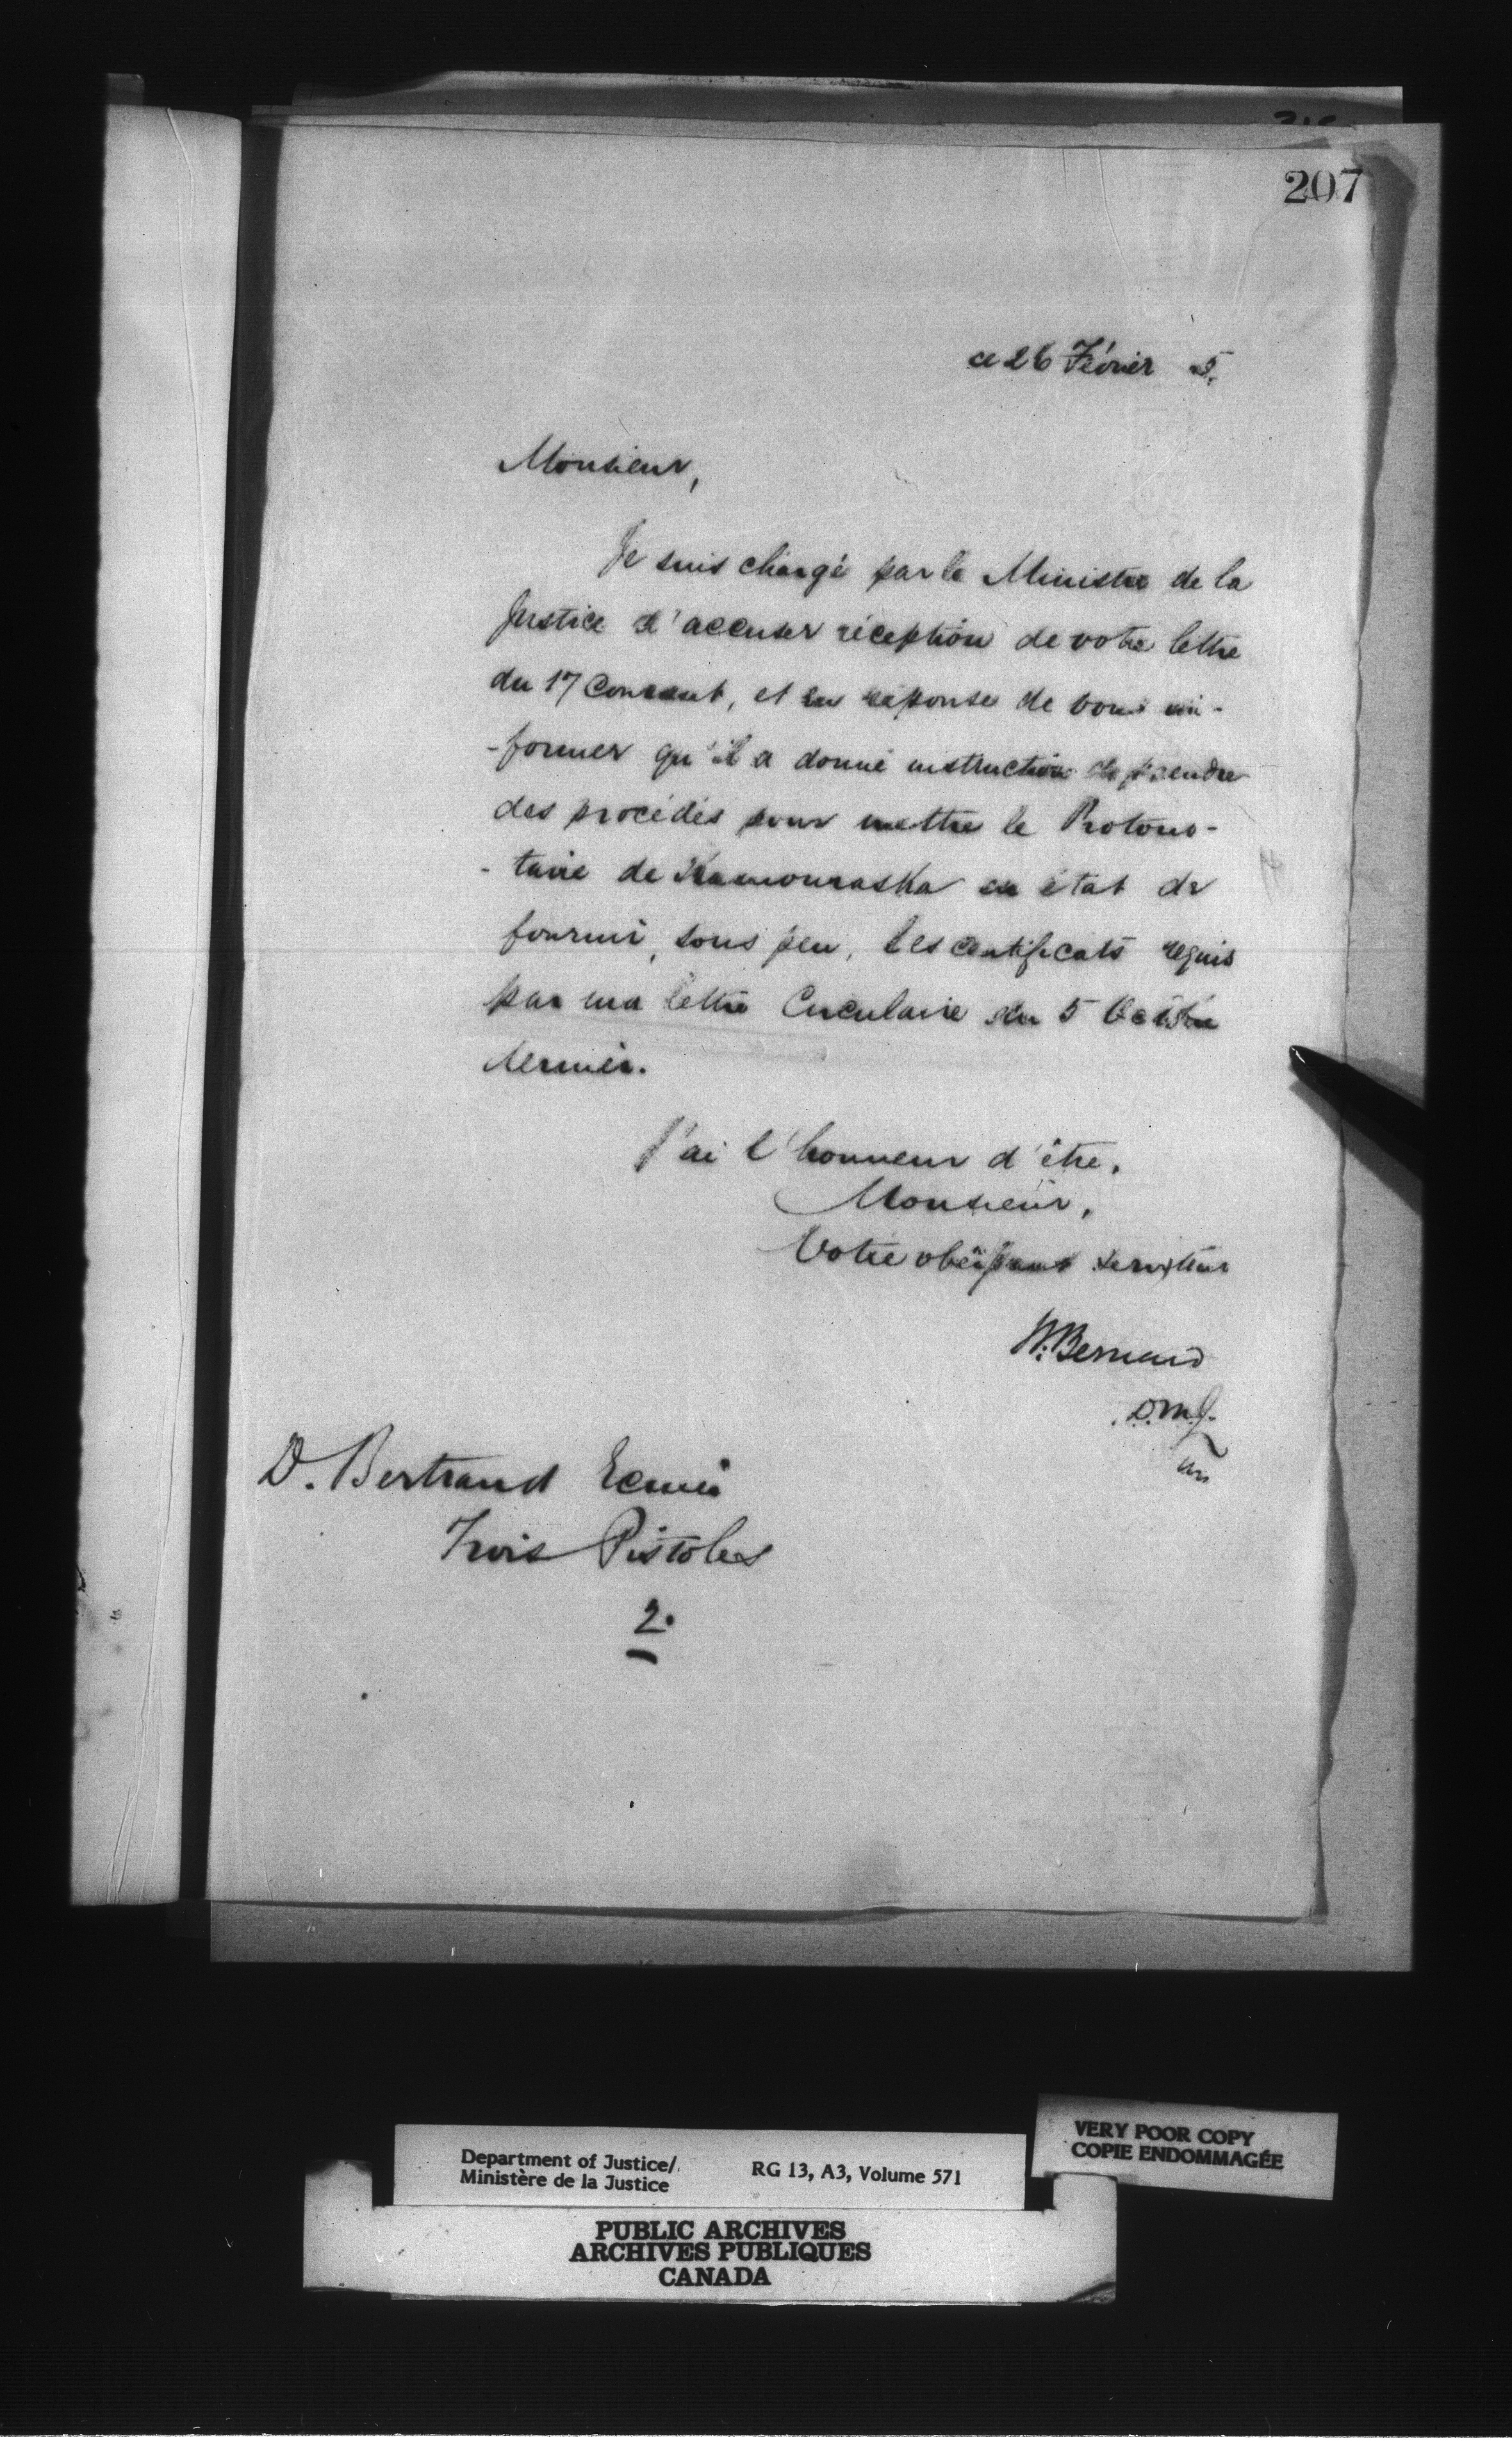 207
ce 26 Février 5.
Monsieur,
Je suis chargé par le Ministre de la
Justice d'accuser réception de votre lettre
du 17 Courant, et en réponse de vous in-
-former qu'il a donné instruction de prendre
des procédés pour mettre le Protono-
-taire de Kamouraska en état de
fournir, sous peu, les certificats requis
par ma lettre Circulaire du 5 Octobre
dernier.
J'ai l'honneur d'être,
Monsieur,
Votre obéissant serviteur
Bernard
D.M.J.
D. Bertrand Ecuier
Trois Pistoles
2.
VERY POOR COPY
COPIE ENDOMMAGÉE
Department of Justice/
Ministère de la Justice
RG 13, A3, Volume 571
PUBLIC ARCHIVES
ARCHIVES PUBLIQUES
CANADA